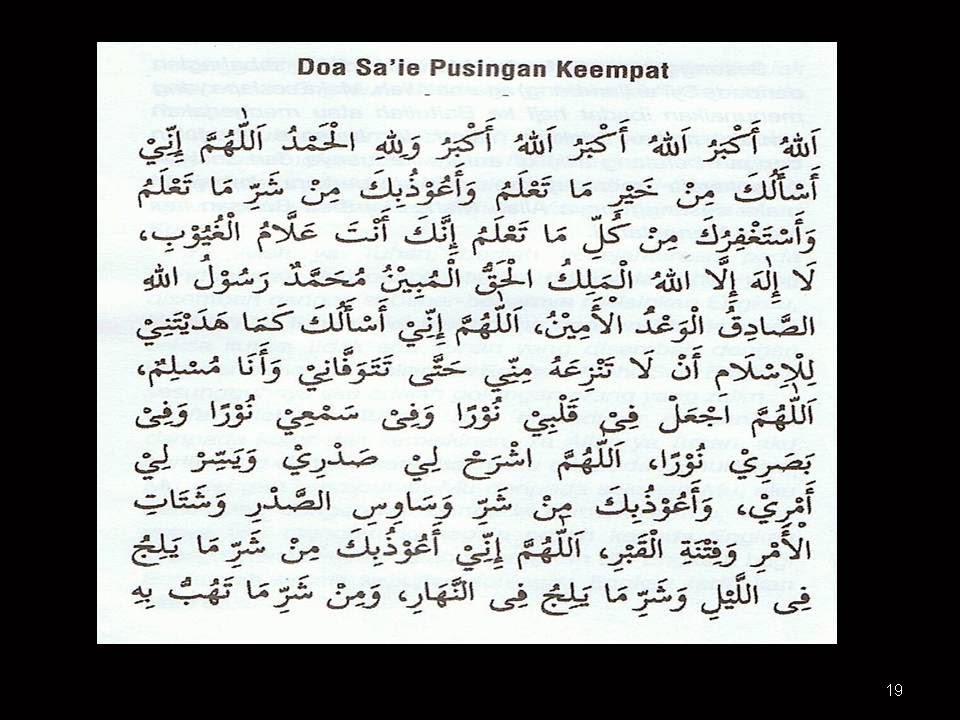 Doa Sa'ie Pusingan Keempat
اَللهُ أَكْبَرُ اَللهُ أَكْبَرُ اَللهُ أَكْبَرُ وَلِلهِ الْحَمْدُ اَللّٰهُمَّ إِنِّيْ
أَسْأَلُكَ مِنْ خَيْرِ مَا تَعْلَمُ وَأَعُوْذُبِكَ مِنْ شَرِّ مَا تَعْلَمُ
وَأَسْتَغْفِرُكَ مِنْ كُلِّ مَا تَعْلَمُ إِنَّكَ أَنْتَ عَلَّامُ الْغُيُوْبِ،
لَا إِلٰهَ إِلَّا اللهُ الْمَلِكُ الْحَقُّ الْمُبِيْنُ مُحَمَّدٌ رَسُوْلُ اللهِ
الصَّادِقُ الْوَعْدُ الْأَمِيْنُ، اَللّٰهُمَّ إِنِّيْ أَسْأَلُكَ كَمَا هَدَيْتَنِيْ
لِلْإِسْلَامِ أَنْ لَا تَنْزِعَهُ مِنِّي حَتَّى تَتَوَفَّانِيْ وَأَنَا مُسْلِمٌ،
اَللّٰهُمَّ اجْعَلْ فِيْ قَلْبِيْ نُوْرًا وَفِيْ سَمْعِيْ نُوْرًا وَفِيْ
بَصَرِيْ نُوْرًا، اَللّٰهُمَّ اشْرَحْ لِيْ صَدْرِيْ وَيَسِّرْ لِيْ
أَمْرِيْ، وَأَعُوْذُبِكَ مِنْ شَرِّ وَسَاوِسِ الصَّدْرِ وَشَتَاتِ
الْأَمْرِ وَفِتْنَةِ الْقَبْرِ، اَللّٰهُمَّ إِنِّيْ أَعُوْذُبِكَ مِنْ شَرِّ مَا يَلِجُ
فِى اللَّيْلِ وَشَرِّ مَا يَلِجُ فِى النَّهَارِ، وَمِنْ شَرِّ مَا تَهُبُّ بِهِ
19